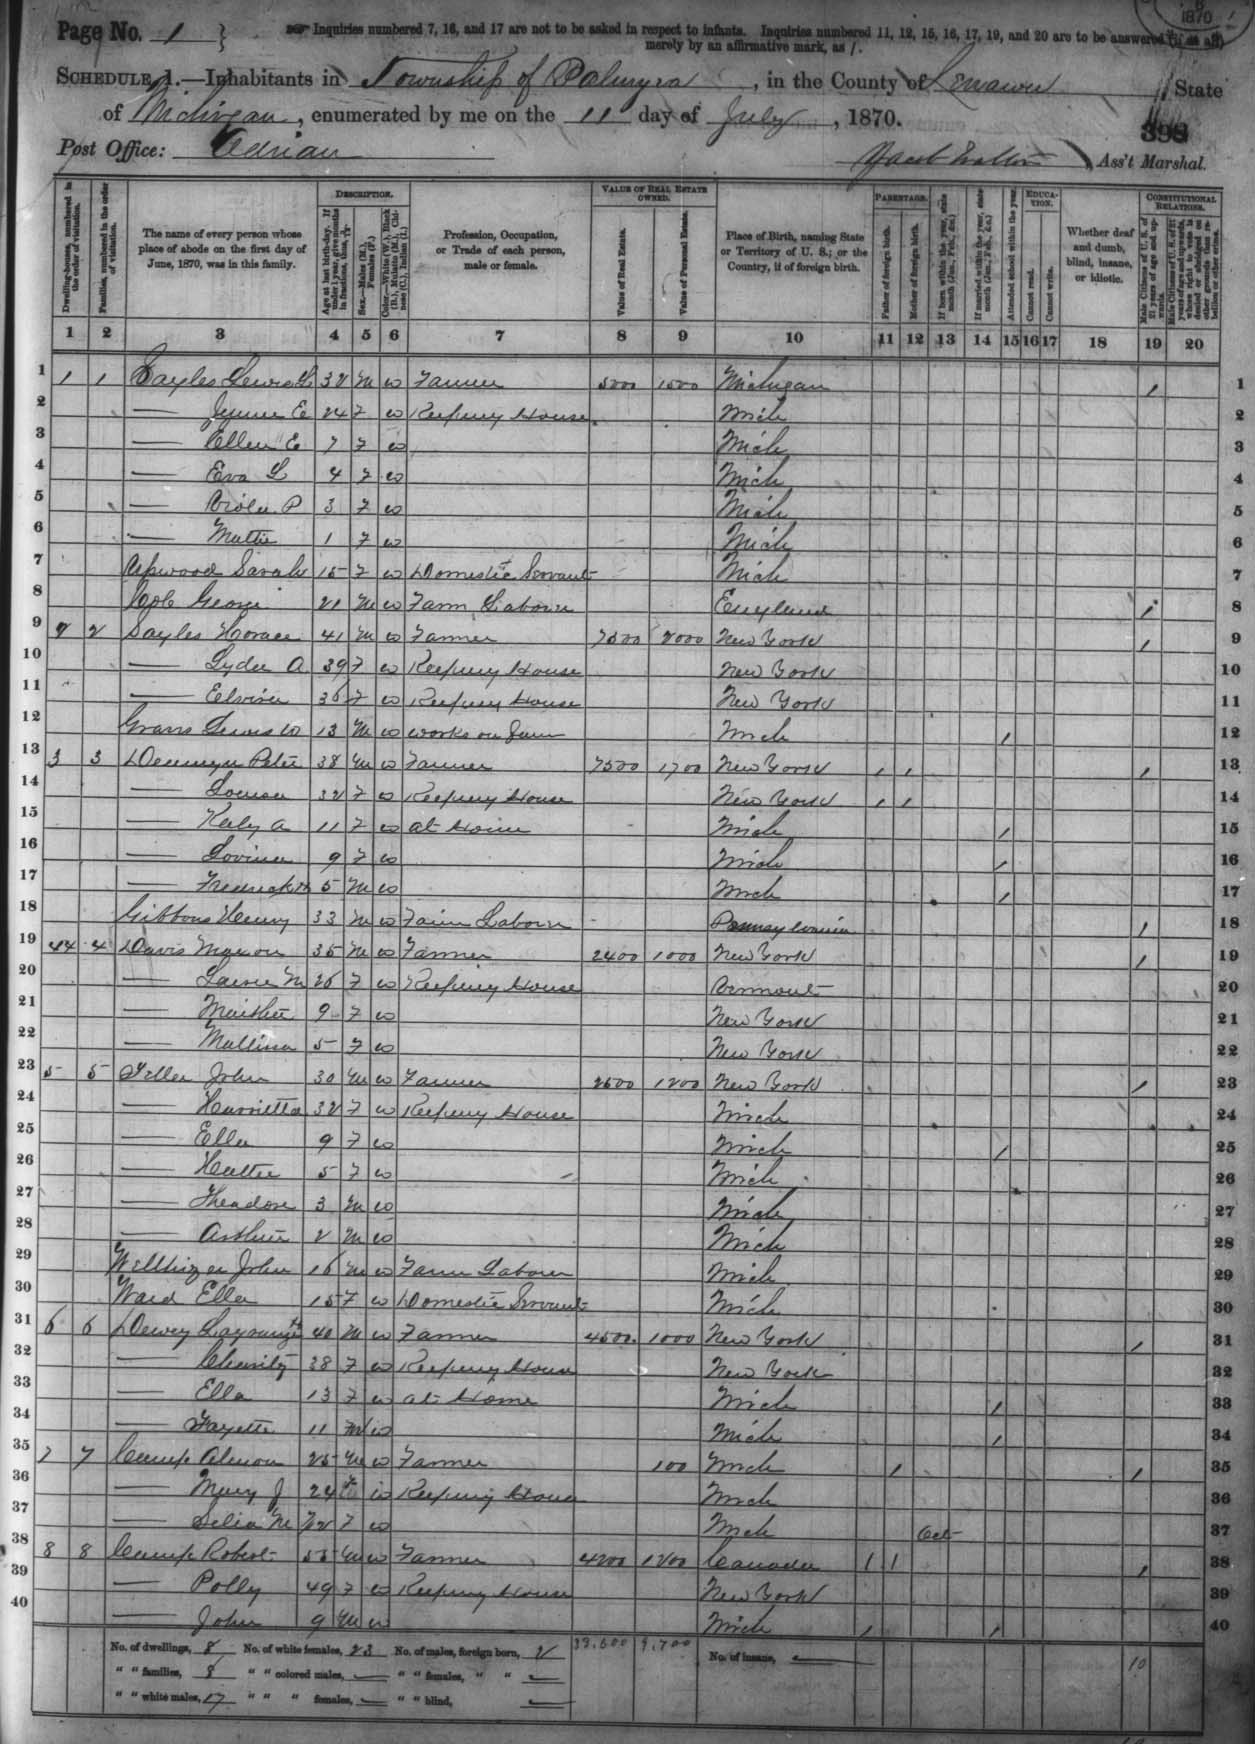 Page No. 1
Inquiries numbered 7, 16, and 17 are not to be asked in respect to infants. Inquiries numbered 11, 12, 15, 16, 17, 19, and 20 are to be answered (if at all)
merely by an affirmative mark, as /.
1870
SCHEDULE 1.—Inhabitants in Township of Palmyra, in the County of Lenawee State
of Michigan, enumerated by me on the 11 day of July, 1870.
398
Post Office: Adrian
Jacob Walton Ass't Marshal.
Dwelling-houses, numbered in the order of visitation.
Families, numbered in the order of visitation.
The name of every person whose place of abode on the first day of June, 1870, was in this family.
DESCRIPTION.
Age at last birth-day. If under 1 year, give months in fractions, thus, 3/12
Sex.—Males (M.), Females (F.)
Color.—White (W.), Black (B.), Mulatto (M.), Chinese (C.), Indian (I.)
Profession, Occupation, or Trade of each person, male or female.
VALUE OF REAL ESTATE OWNED.
Value of Real Estate.
Value of Personal Estate.
Place of Birth, naming State or Territory of U. S.; or the Country, if of foreign birth.
PARENTAGE.
Father of foreign birth.
Mother of foreign birth.
If born within the year, state month (Jan., Feb., &c.)
If married within the year, state month (Jan., Feb., &c.)
Attended school within the year.
EDUCATION.
Cannot read.
Cannot write.
Whether deaf and dumb, blind, insane, or idiotic.
CONSTITUTIONAL RELATIONS.
Male Citizens of U. S. of 21 years of age and upwards.
Male Citizens of U. S. of 21 years of age and upwards, whose right to vote is denied or abridged on other grounds than rebellion or other crime.
1 2 3 4 5 6 7 8 9 10 11 12 13 14 15 16 17 18 19 20
1 1 1 Sayles Lewis L 32 M W Farmer 5000 1500 Michigan / 1
2 — E 24 F W Keeping House Mich 2
3 — Ellen E 7 F W Mich 3
4 — Eva L 4 F W Mich 4
5 — Viola P 3 F W Mich 5
6 — Mattie 1 F W Mich 6
7 Upwood Sarah 15 F W Domestic Servant Mich 7
8 Cole George 21 M W Farm Laborer England / 8
9 2 2 Sayles Horace 41 M W Farmer 7500 2000 New York / 9
10 — Lydia A 39 F W Keeping House New York 10
11 — Elvira 36 F W Keeping House New York 11
12 Graves Lewis W 13 M W Works on farm Mich / 12
13 3 3 Peter 38 M W Farmer 7500 1700 New York / / / 13
14 — Louisa 32 F W Keeping House New York / / 14
15 — A 11 F W at Home Mich / 15
16 — Lovina 9 F W Mich / 16
17 — Frederick 5 M W Mich / 17
18 Gibbons Henry 33 M W Farm Laborer Pennsylvania / 18
19 44 4 Davis 35 M W Farmer 2400 1000 New York / 19
20 — M 26 F W Keeping House Vermont 20
21 — Martha 9 F W New York 21
22 — Mallissa 5 F W New York 22
23 5 5 Teller John 30 M W Farmer 2500 1200 New York / 23
24 — Harrietta 32 F W Keeping House Mich 24
25 — Ella 9 F W Mich / 25
26 — Hattie 5 F W Mich 26
27 — Theadore 3 M W Mich 27
28 — Arthur 2 M W Mich 28
29 John 16 M W Farm Laborer Mich 29
30 Ward Ella 15 F W Domestic Servant Mich 30
31 6 6 Dewey Lagrange 40 M W Farmer 4500 1000 New York / 31
32 — Charity 38 F W Keeping House New York 32
33 — Ella 13 F W at Home Mich / 33
34 — Fayette 11 M W Mich / 34
35 7 7 Camp Almon 25 M W Farmer 100 Mich / / 35
36 — Mary J 24 F W Keeping House Mich 36
37 — Delia M F W Mich Oct 37
38 8 8 Camp Robert 55 M W Farmer 4200 1200 Canada / / / 38
39 — Polly 49 F W Keeping House New York 39
40 — John 9 M W Mich / / 40
No. of dwellings, 8 No. of white females, 23 No. of males, foreign born, 2 33,600 9,700 No. of insane, — 10
" " families, 8 " " colored males, — " " females, " " —
" " white males, 17 " " " females, — " " blind, —